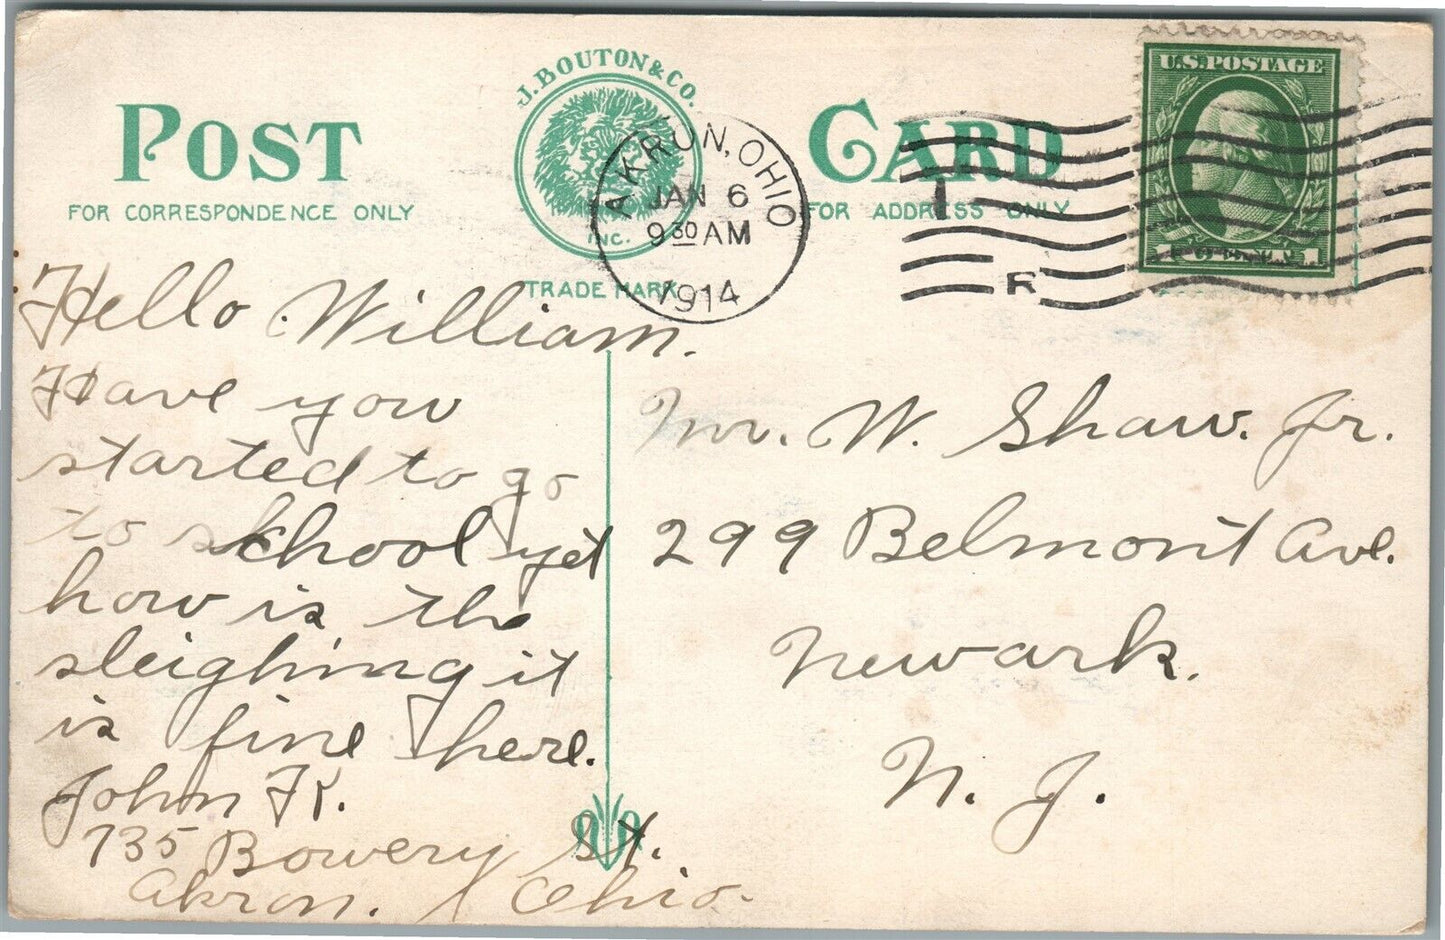 POST CARD
FOR CORRESPONDENCE ONLY
J. BOUTON & CO.
INC.
TRADE MARK
FOR ADDRESS ONLY
AKRON, OHIO
JAN 6
9 30 AM
1914
U.S. POSTAGE
Hello William.
Have you
started to go
to school yet
how is the
sleighing it
is fine here.
John K.
735 Bowery St.
Akron, Ohio.
Mr. W. Shaw. Jr.
299 Belmont Ave.
Newark.
N. J.